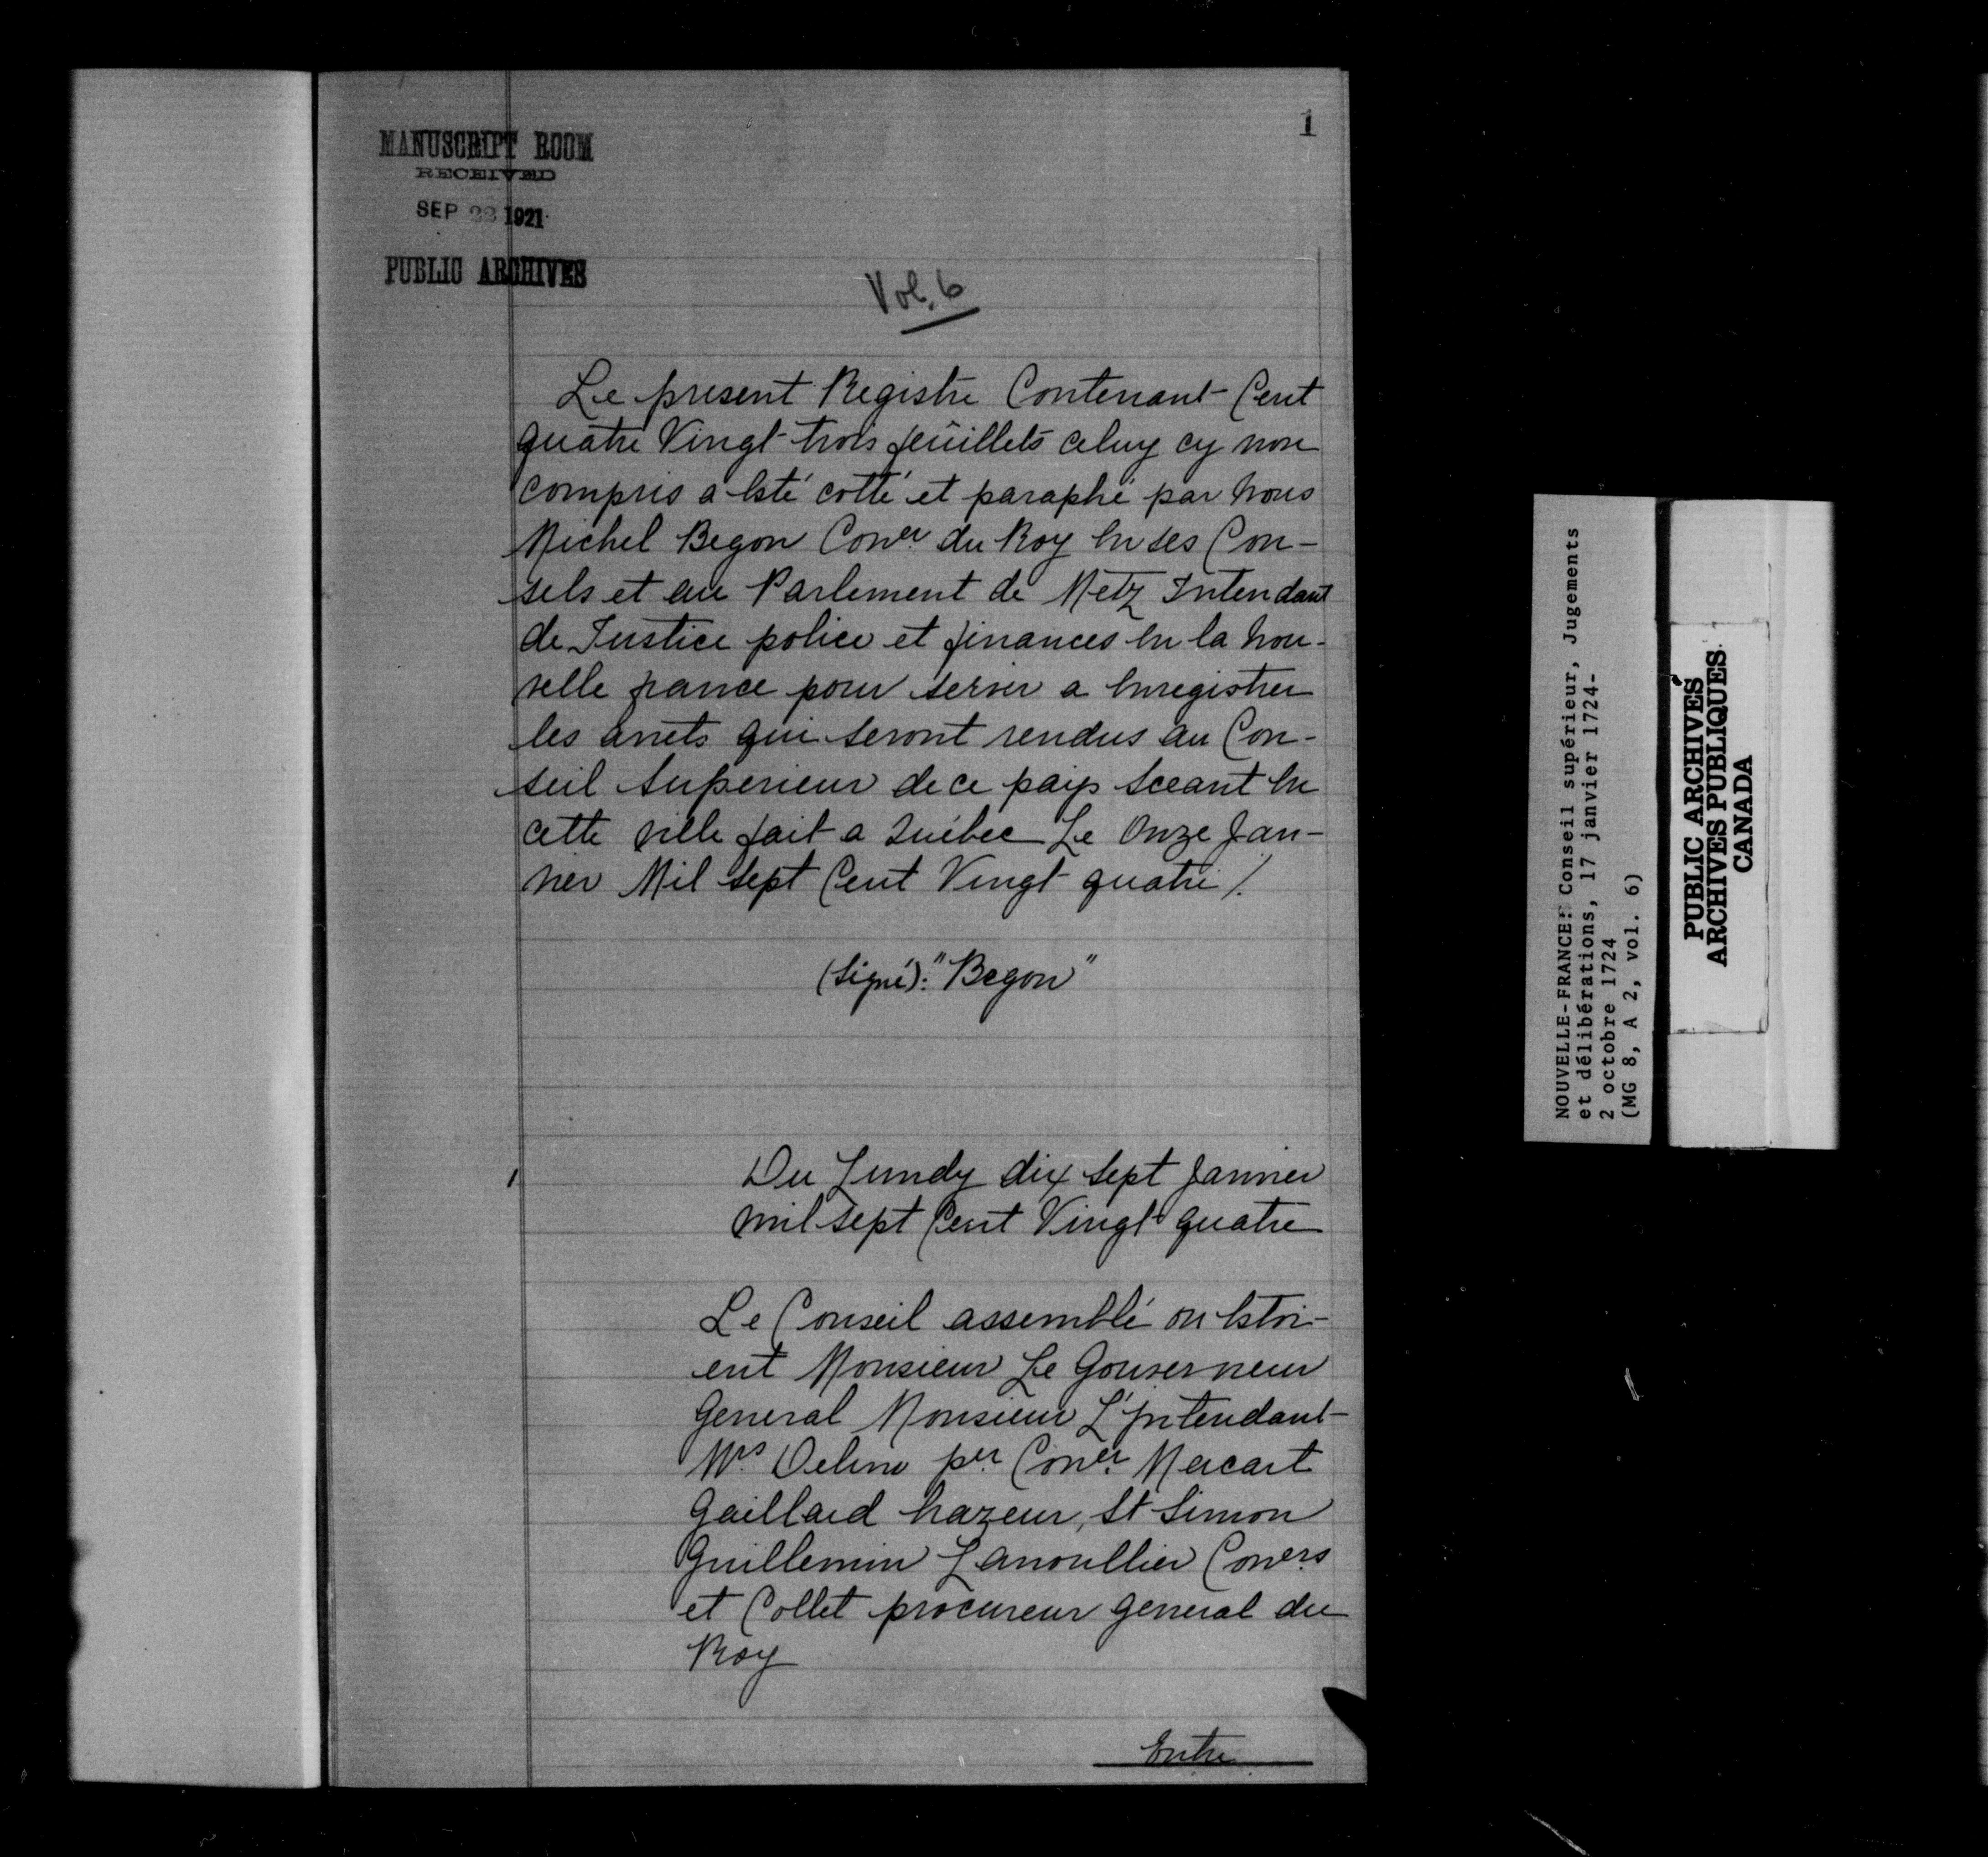 1
MANUSCRIPT ROOM
RECEIVED
SEP 23 1921
PUBLIC ARCHIVES
Vol. 6
Le present Registre Contenant Cent
quatre Vingt trois feüillets celuy cy non
compris a Esté cotté et paraphé par nous
Michel Begon Coner. du Roy En ses Con-
sels et au Parlement de Metz Intendant
de Justice police et finances En la nou-
velle france pour servir a Enregistrer
les arrets qui seront rendus au Con-
seil Superieur de ce pays Sceant En
cette ville fait a Québec Le Onze Jan-
vier Mil Sept Cent Vingt quatre /.
(Signé): "Begon"
1
Du Lundy dix Sept Janvier
mil Sept Cent Vingt quatre
Le Conseil assemblé ou Estoi-
ent Monsieur Le Gouverneur
General Monsieur L'Intendant
Mrs. Delino per Coner. Macart
Gaillard hazeur, St Simon
Guillemin Lanoullier Coners.
et Collet procureur general du
Roy
Entre
NOUVELLE-FRANCE: Conseil supérieur, Jugements
et délibérations, 17 janvier 1724-
2 octobre 1724
(MG 8, A 2, vol. 6)
PUBLIC ARCHIVES
ARCHIVES PUBLIQUES
CANADA